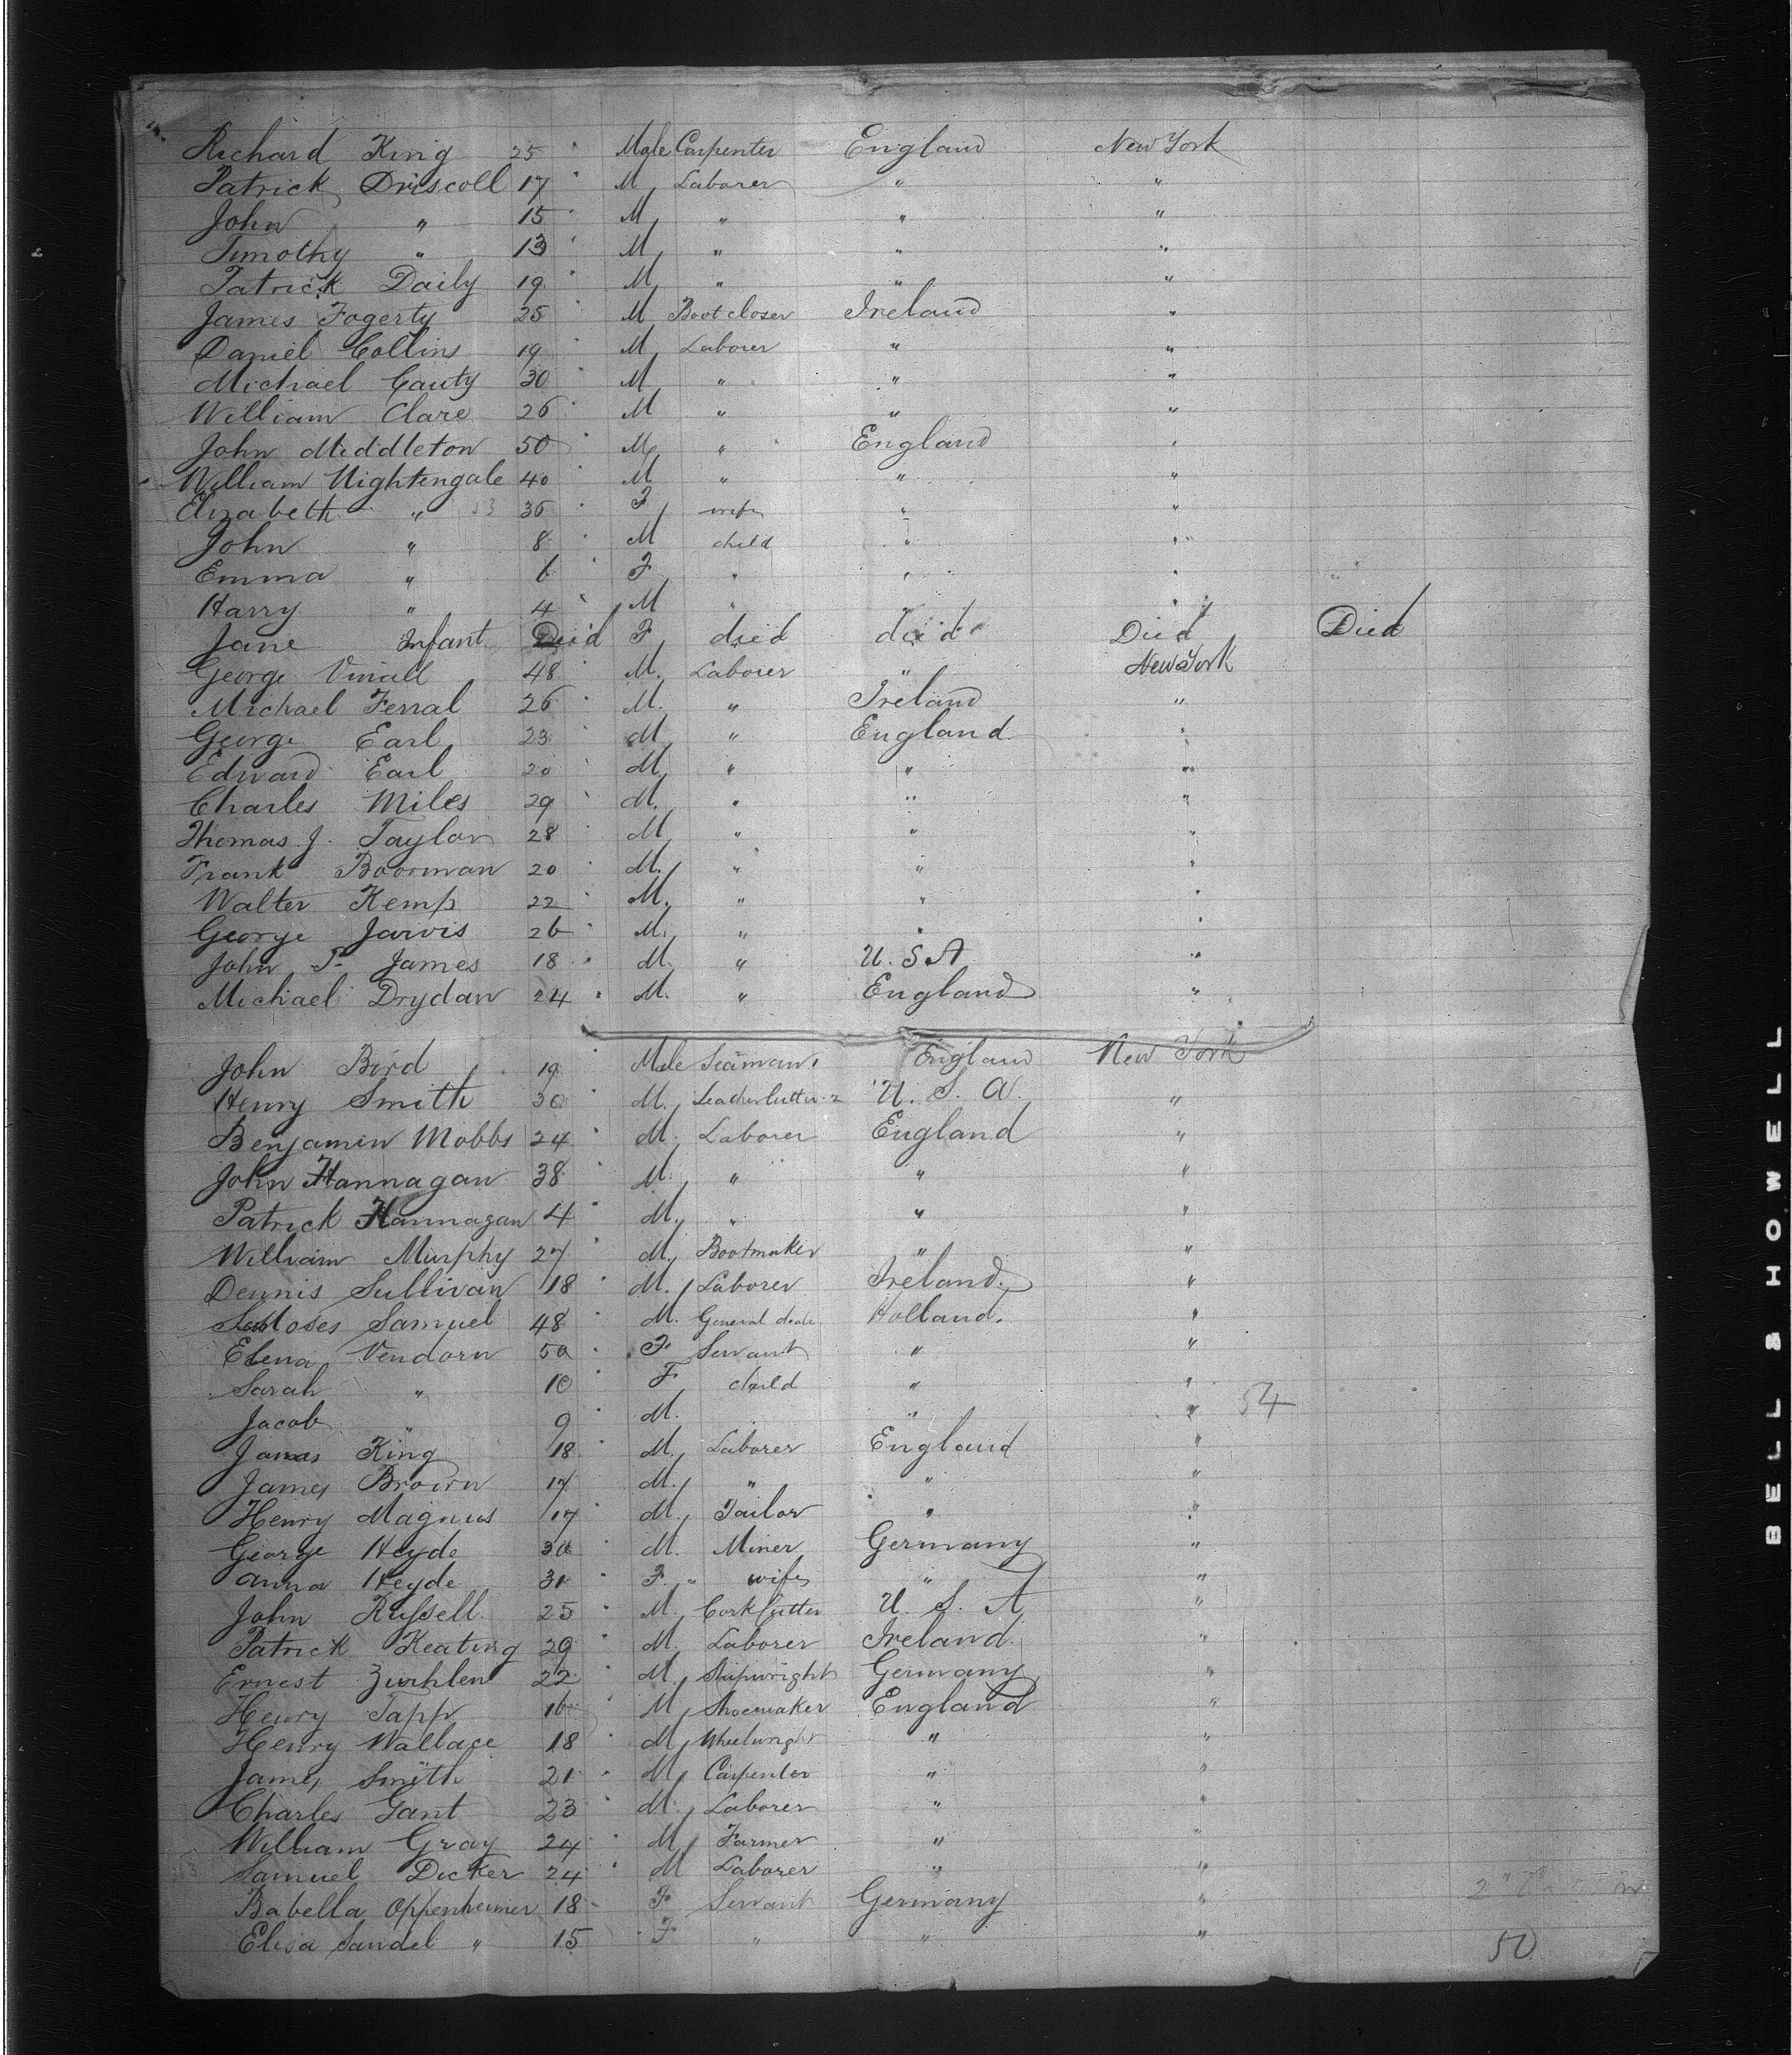 Richard King 25 " Male Carpenter England New York
Patrick Driscoll 17 " M, Laborer " "
John " 15 " M, " " "
Timothy " 13 " M, " " "
Patrick Daily 19 " M, " " "
James Fogerty 25 " M Boot closer Ireland "
Daniel Collins 19 " M, Laborer " "
Michael Cauty 30 " M, " " "
William Clare 26 " M " " "
John Middleton 50 " M, " England "
William Nightengale 40 " M " " "
Elizabeth " 36 " F, wife " "
John " 8 " M child " "
Emma " 6 " F, " " "
Harry " 4 " M, " " "
Jane Infant Died F, died died Died Died
George Vinall 48 " M. Laborer " New York
Michael Ferral 26 " M. " Ireland "
George Earl 23 " M, " England "
Edward Earl 20 " M, " " "
Charles Miles 29 " M. " " "
Thomas J. Taylor 28 " M, " " "
Frank Boorman 20 " M. " " "
Walter Kemp 22 " M. " " "
George Jarvis 26 " M. " " "
John P. James 18 " M. " U. S A "
Michael Drydan 24 " M. " England "
John Bird 19 " Male Seaman England New York
Henry Smith 30 " M. U. S. A. "
Benjamin Mobbs 24 " M. Laborer England "
John Hannagan 38 " M. " " "
Patrick Hannagan 4 " M. " " "
William Murphy 27 " M. Bootmaker " "
Dennis Sullivan 18 " M. Laborer Ireland "
Moses Samuel 48 " M. General deale Holland. "
Elena Vendorn 50 " F Servant " "
Sarah " 10 " F child " "
Jacob " 9 " M. " " 54
James King 18 " M. Laborer England "
James Brown 17 M. " " "
Henry Magnus 17 " M. Tailor " "
George Heyde 30 " M. Miner Germany "
Anna Heyde 31 " F. " wife " "
John Russell 25 " M. Cork Cutter U. S. A "
Patrick Keating 29 " M. Laborer Ireland "
Ernest 22 " M, Shipwright Germany "
Henry Tapp 16 " M, Shoemaker England "
Henry Wallace 18 " M, Wheelwright " "
James Smith 21 " M, Carpenter " "
Charles Gant 23 " M, Laborer " "
William Gray 24 " M, Farmer " "
Samuel Dicker 24 " M Laborer " "
Babella Oppenheimer 18 " F Servant Germany "
Elisa Sandel " 15 " F " " "
50
BELL & HOWELL